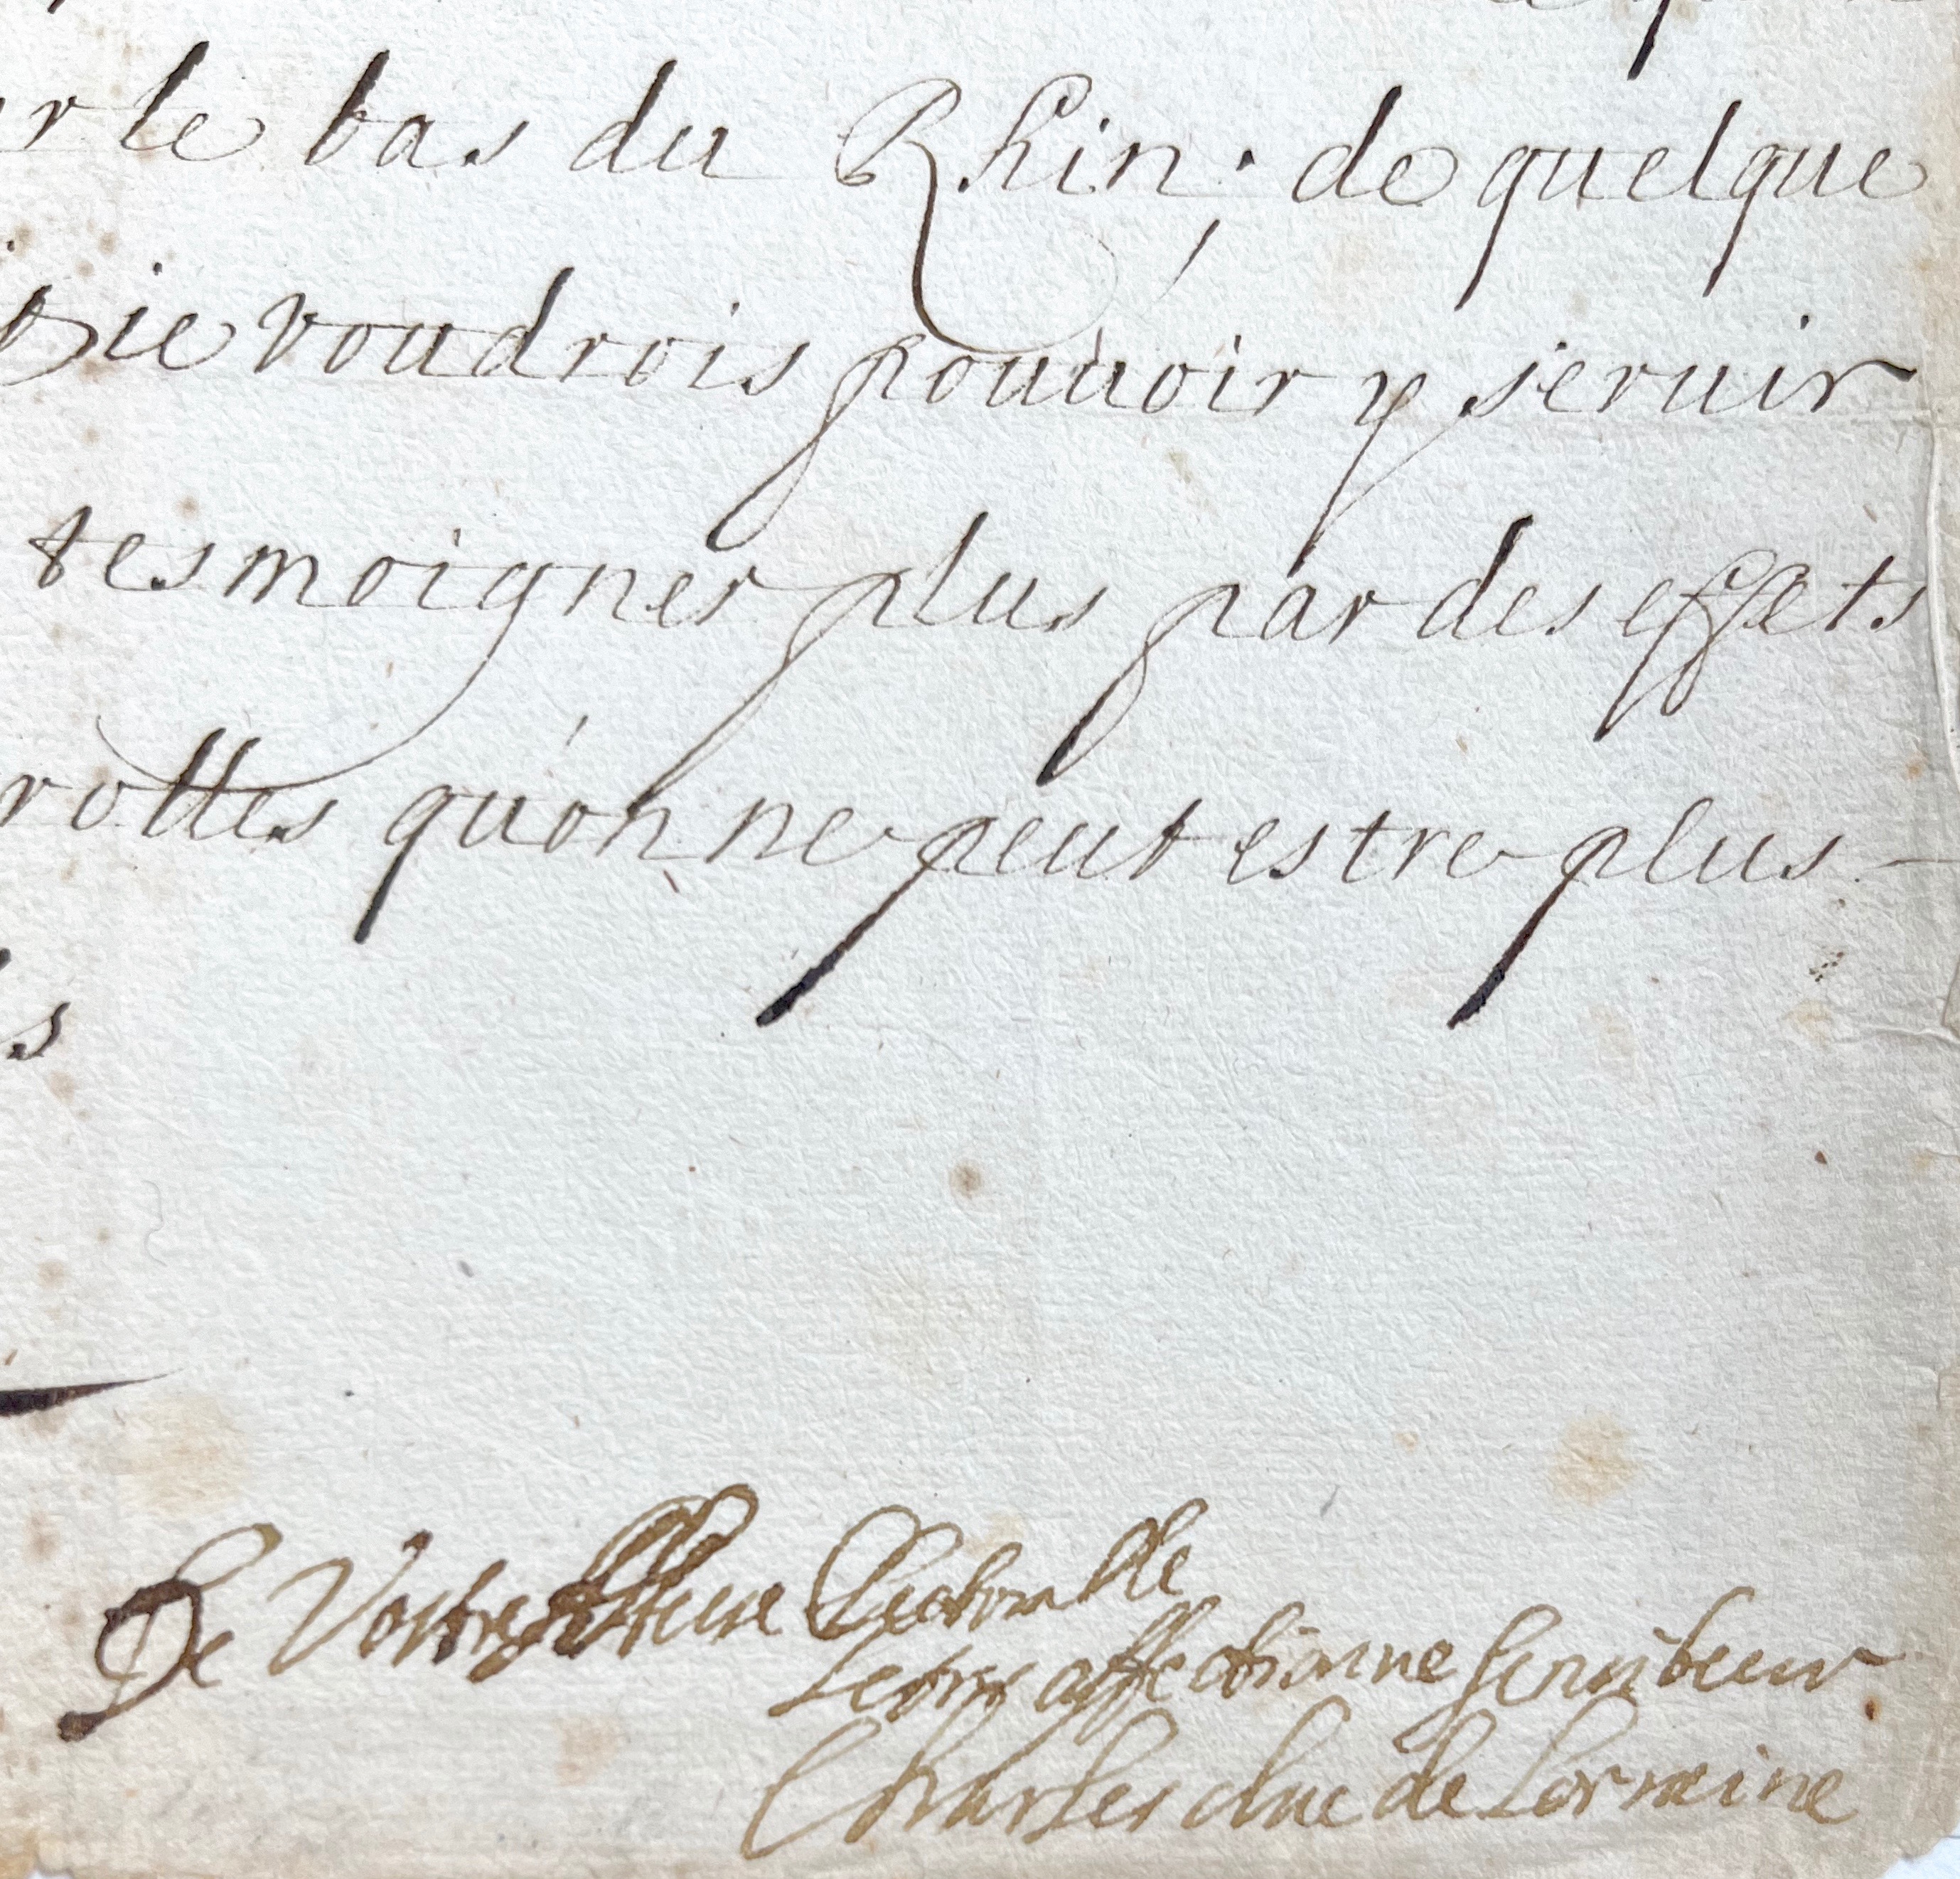 r le bas du Rhin, de quelque
ie voudrois pouuoir y seruir
tesmoigner plus par des effets
rolles qu'on ne peut estre plus
s
De Vostre Altesse Electoralle
Le tres affectionne seruiteur
Charles duc de Lorraine